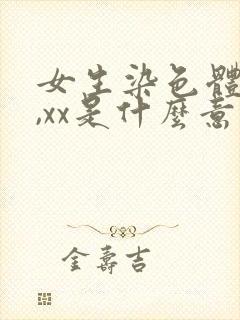 女生染色體
,xx是什麼意
金壽吉